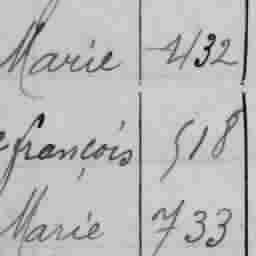 Marie 432
françois 518
Marie 733